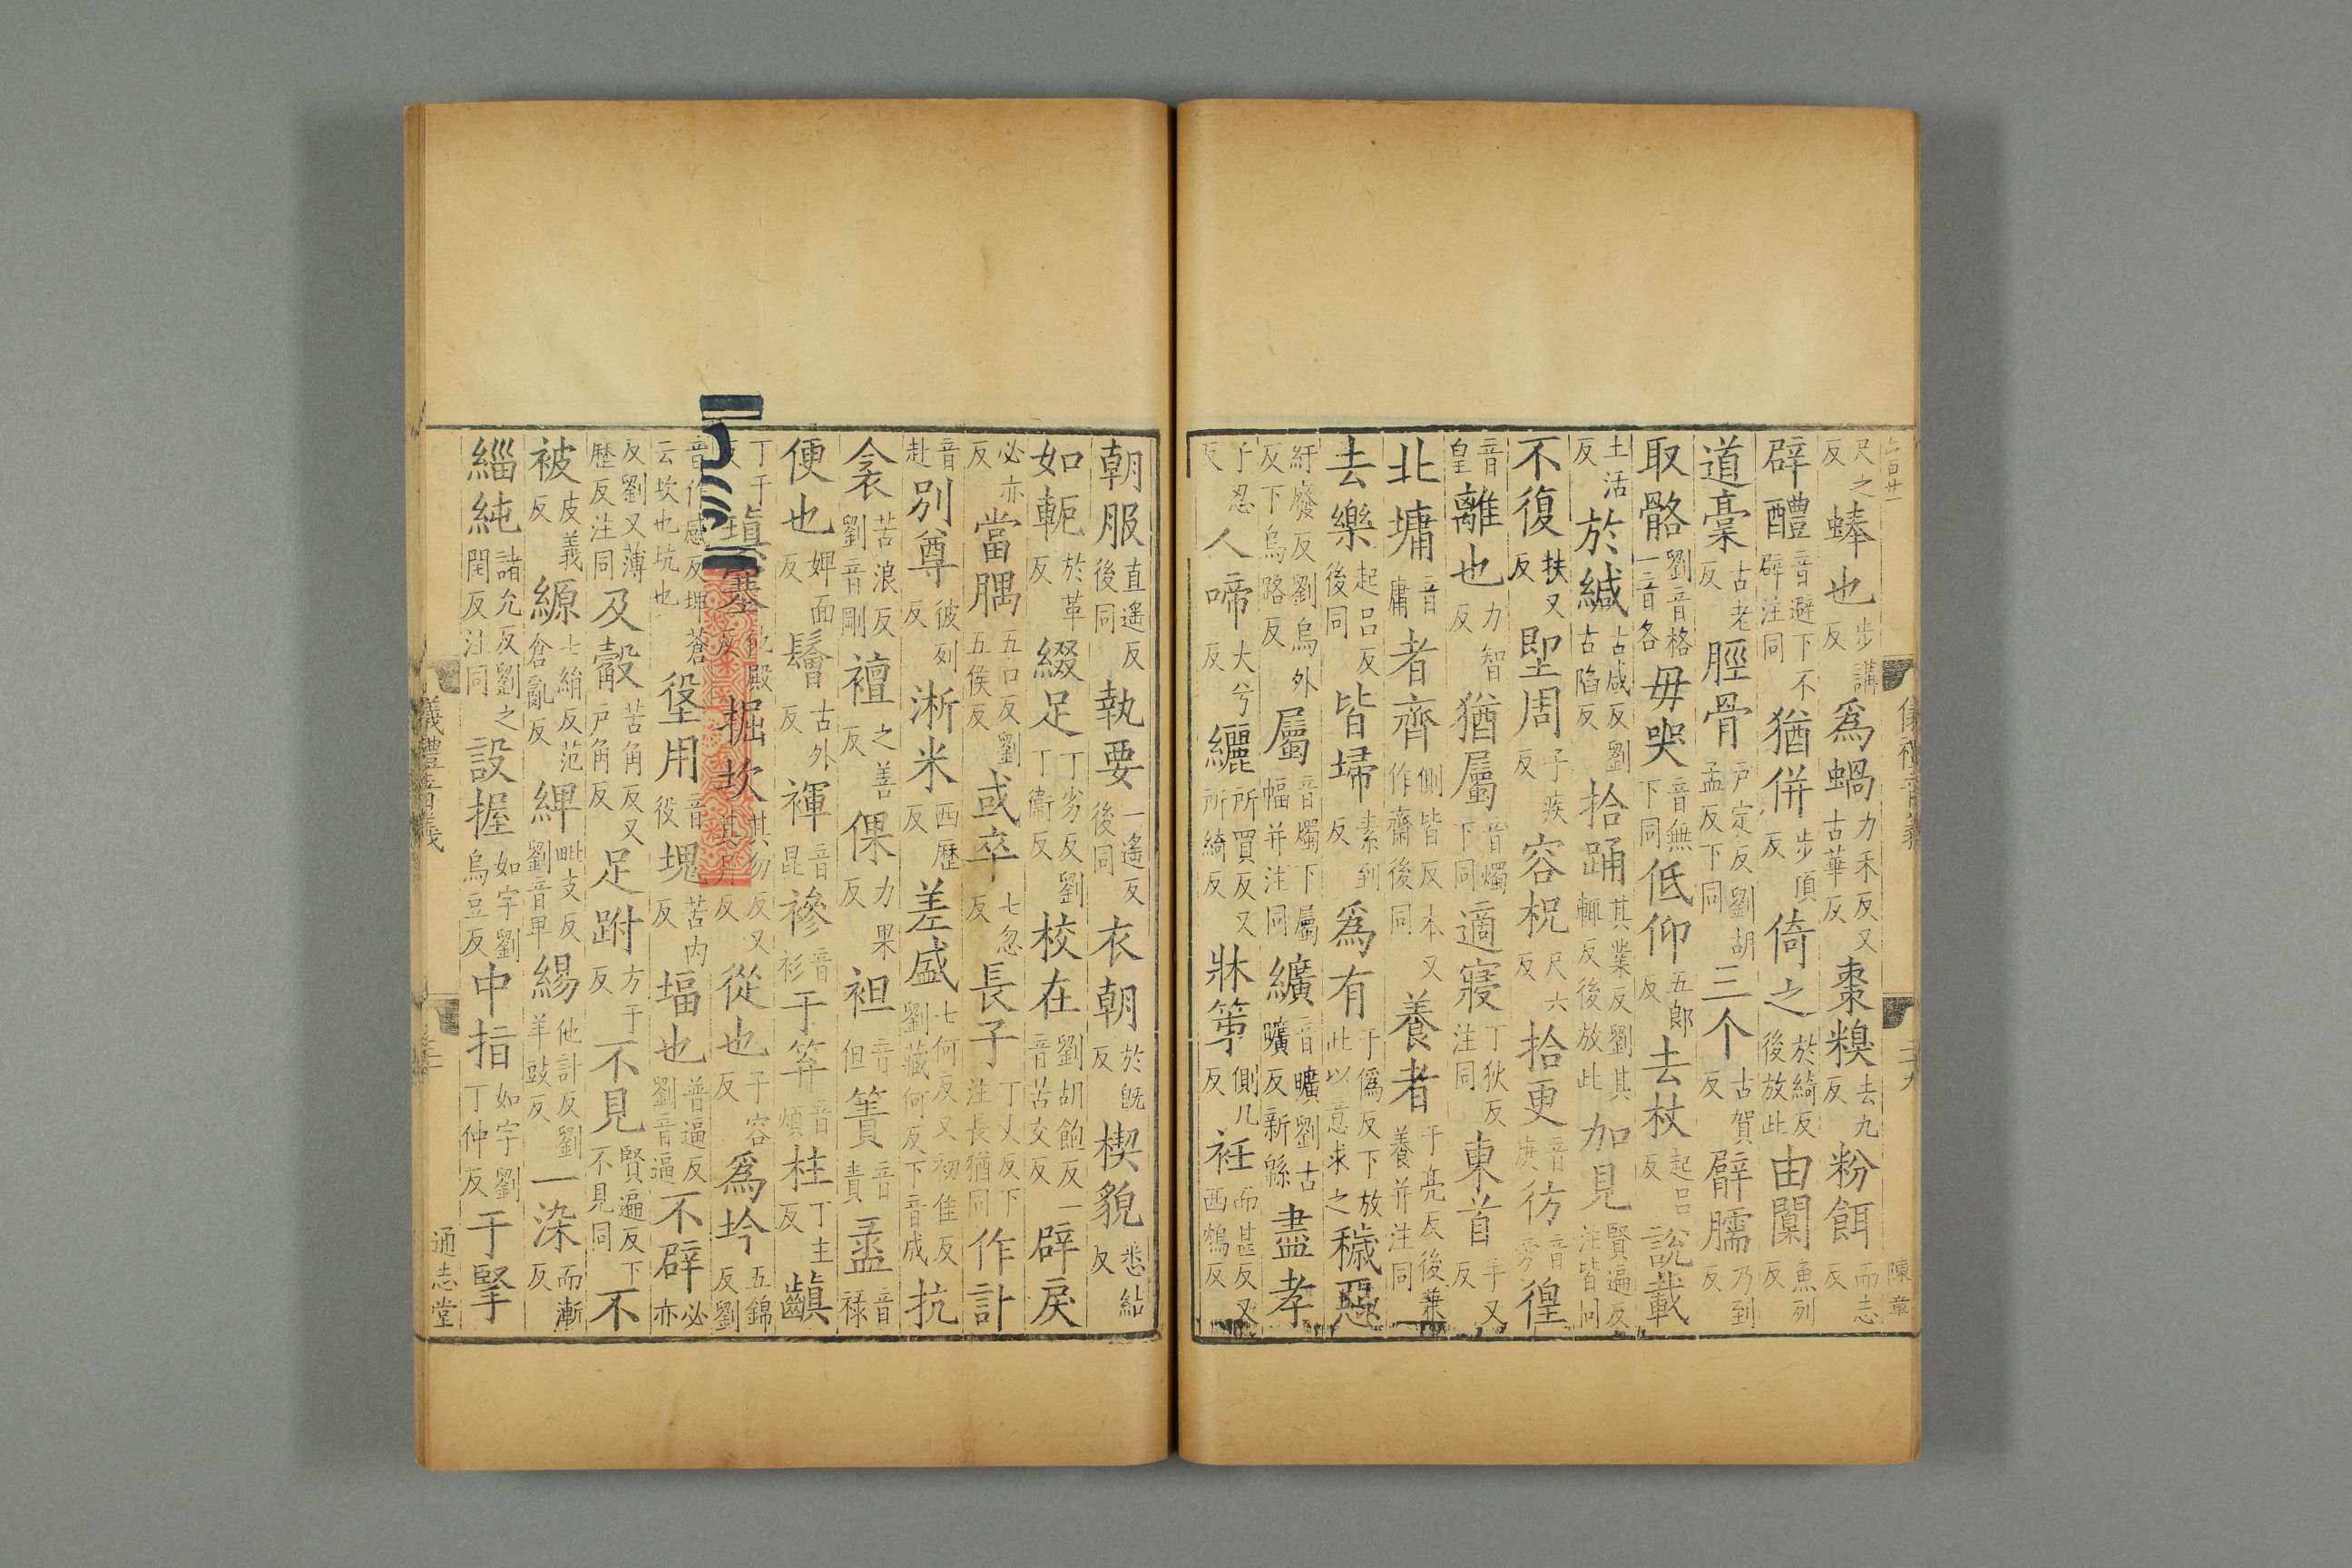 尺之反蜯也步講反爲蝸力禾反又古華反棗糗去九反粉餌而志反
辟醴音避下不辟注同猶併步頂反倚之於綺反後放此由闑魚列反
道槀古老反脛骨戸定反劉胡孟反下同三个古賀反臂臑乃到反
取骼劉音格一音各毋哭音無下同低仰五郎反去杖起呂反說載
土活反於緘古咸反劉古陷反拾踊其業反劉其輒反後放此加見賢遍反注皆同
不復扶又反堲周子疾反容柷尺六反拾更音庚彷音旁徨
音皇離也力智反猶屬音燭下同適寢丁狄反注同東首手又反
北墉音庸者齊側皆反本又作齋後同養者于亮反後兼養并注同
去樂起呂反後同皆埽素到反爲有于僞反下放此以意求之穢惡
紆廢反劉烏外反下烏路反屬音燭下屬幅并注同纊音曠劉古曠反新緜盡孝
子忍反人啼大兮反纚所買反又所綺反牀笫側几反衽而甚反又西鴆反
儀禮音義
二九
陳章
朝服直遥反後同執要一遥反後同衣朝於旣反楔貌悉結反
如軛於革反綴足丁劣反劉丁衞反校在劉胡飽反一音苦交反辟戾
必亦反當腢五口反劉五侯反或卒七忽反長子丁丈反下注長猶同作計
音赴別尊彼列反淅米西歷反差盛七何反又初佳反劉藏何反下音成抗
衾苦浪反劉音剛襢之善反倮力果反袒音但簀音責盝音祿
便也婢面反鬠古外反褌音昆襂音衫于笲音煩柱丁主反齻
丁千反瑱塞他殿反掘坎其勿反又其月反從也子容反爲坅五錦反劉
音作感反埤蒼云坎也坑也垼用音役塊苦内反堛也普逼反劉音逼不辟必亦
反劉又薄歷反注同及觳苦角反又戸角反足跗方于反不見賢遍反下不見同不
被皮義反縓七絹反范倉亂反綼毗支反劉音卑緆他計反劉羊豉反一染而漸反
緇純諸允反劉之閏反注同設握如字劉烏豆反中指如字劉丁仲反于掔
儀禮音義
通志堂